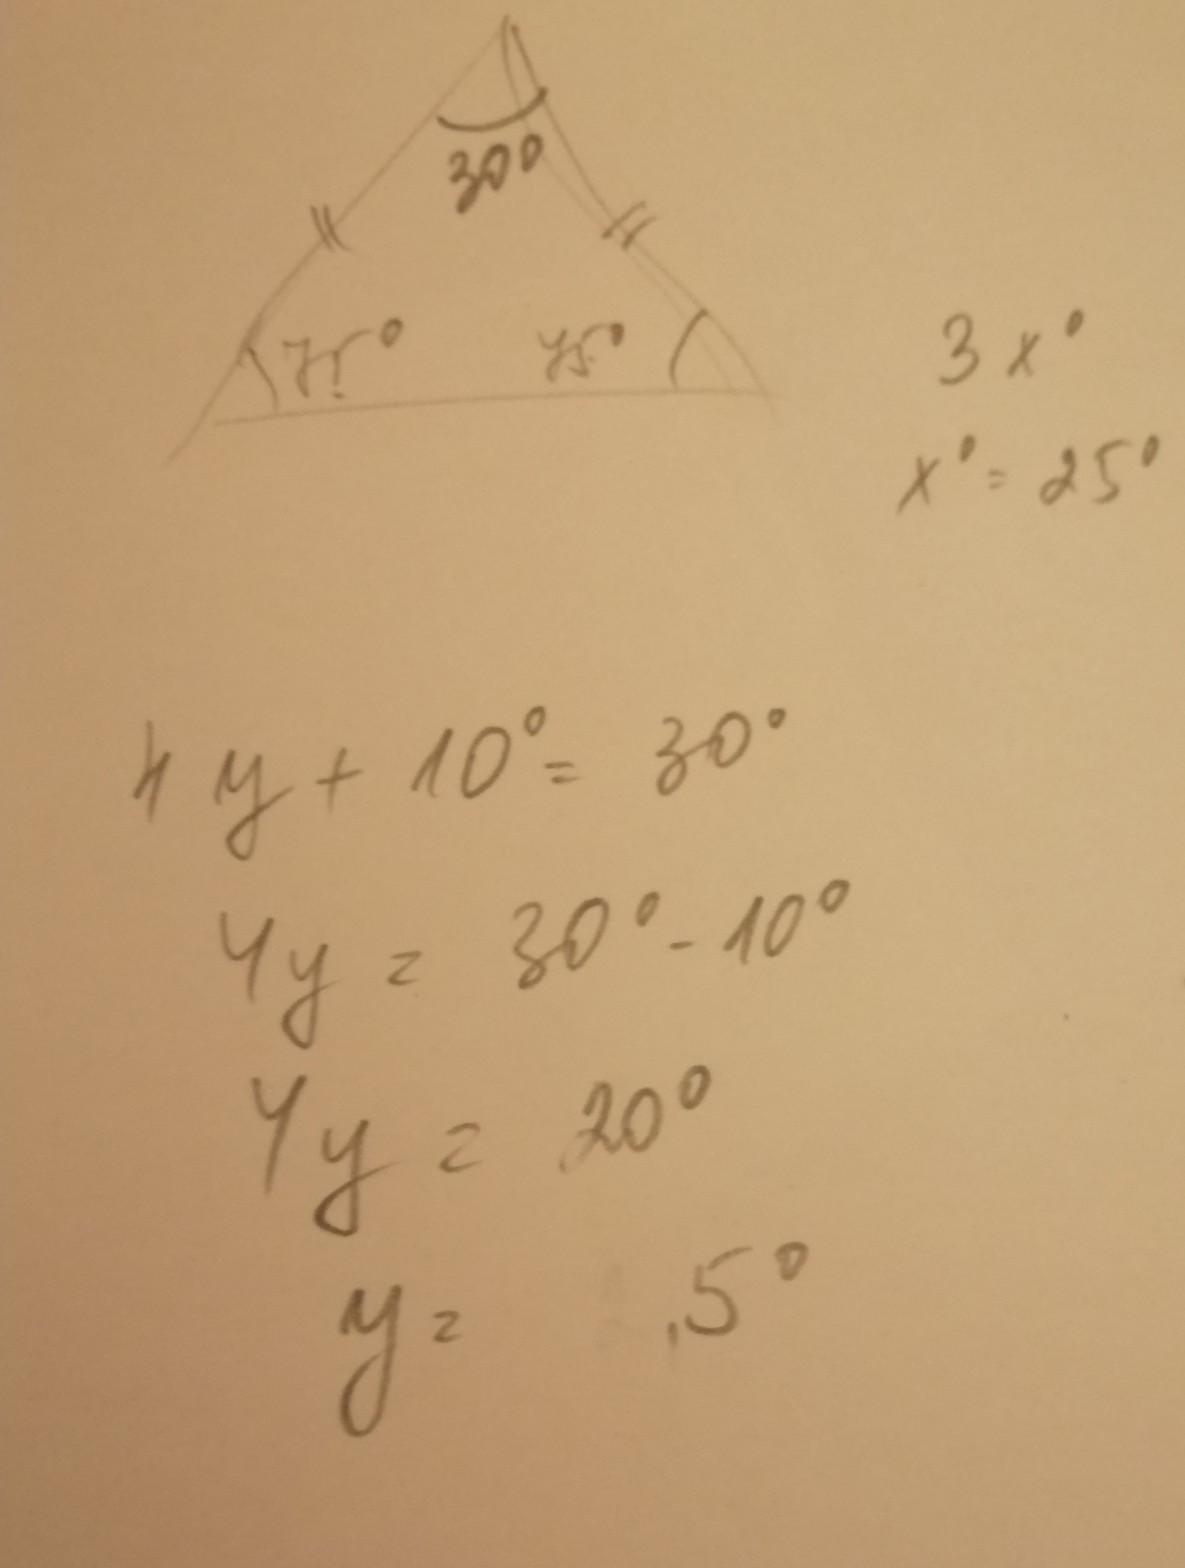 30°
75° 75°
3x°
x° = 25°
4y + 10° = 30°
4y = 30° - 10°
4y = 20°
y = 5°